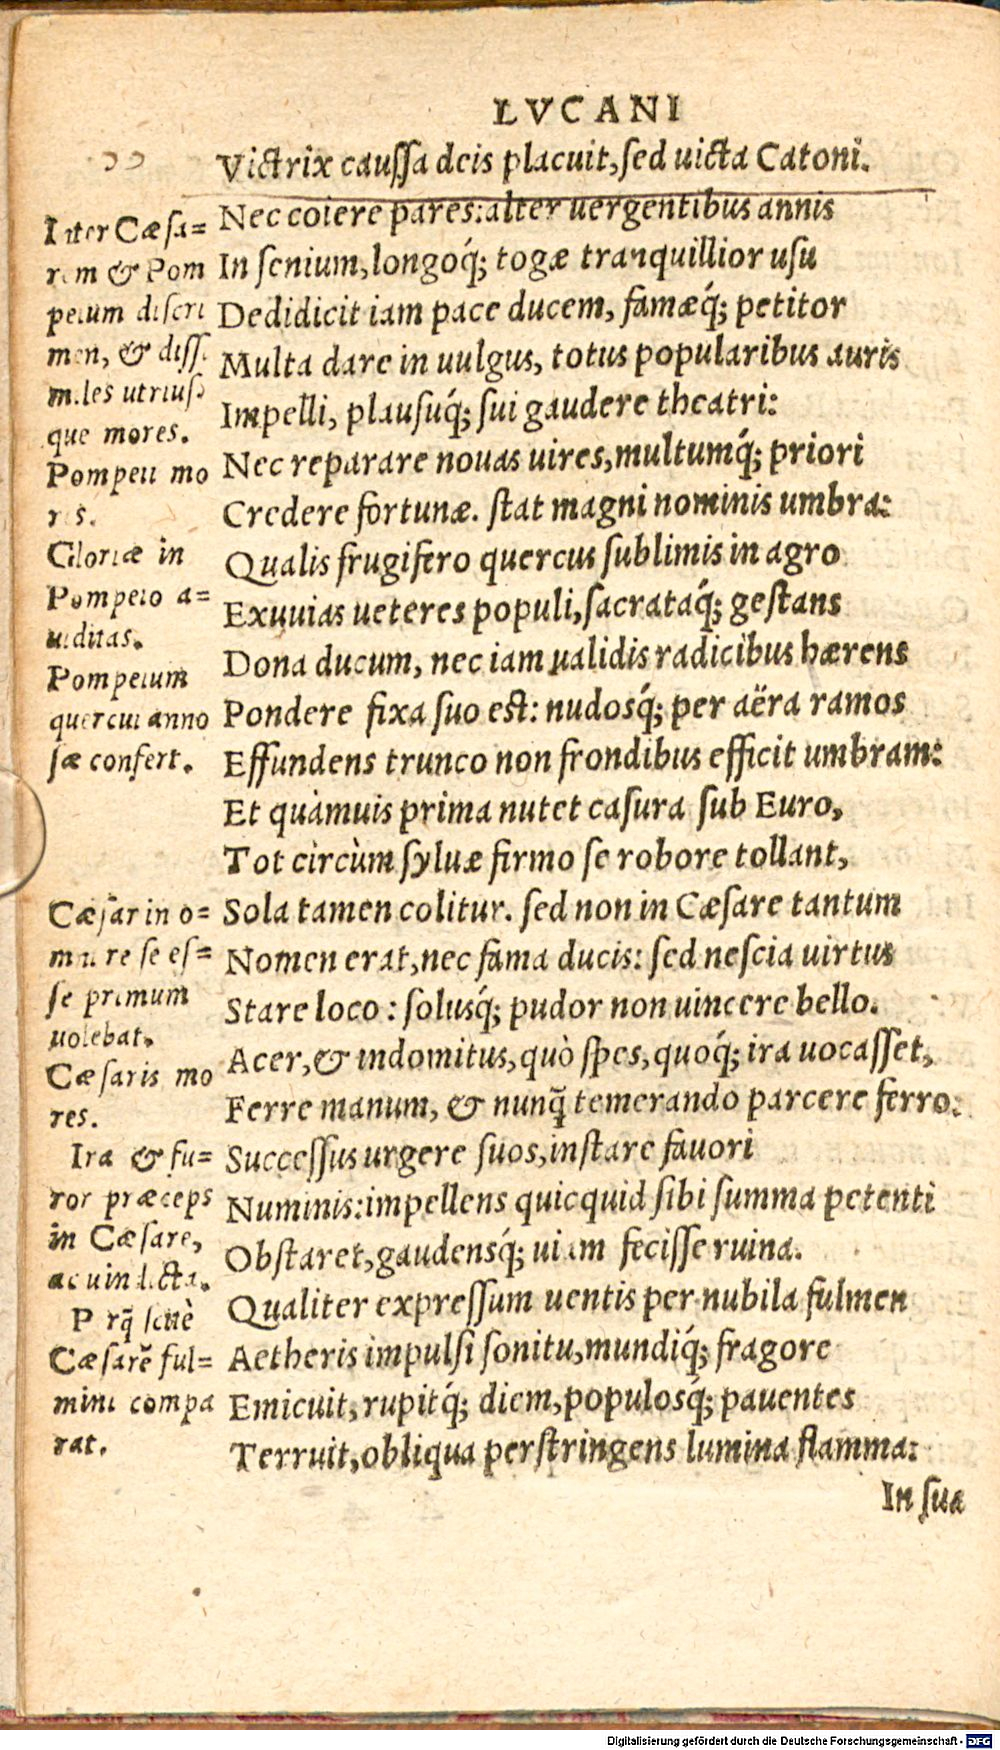 LVCANI
Victrix caussa deis placuit, sed uicta Catoni.
Nec coiere pares: alter uergentibus annis
In senium, longoq́; togæ tranquillior usu
Dedidicit iam pace ducem, famæq́; petitor
Multa dare in uulgus, totus popularibus auris
Impelli, plausuq́; sui gaudere theatri:
Nec reparare nouas uires, multumq́; priori
Credere fortunæ. stat magni nominis umbra:
Qualis frugifero quercus sublimis in agro
Exuuias ueteres populi, sacrataq́; gestans
Dona ducum, nec iam ualidis radicibus hærens
Pondere fixa suo est: nudosq́; per aëra ramos
Effundens trunco non frondibus efficit umbram:
Et quàmuis prima nutet casura sub Euro,
Tot circùm syluæ firmo se robore tollant,
Sola tamen colitur. sed non in Cæsare tantum
Nomen erat, nec fama ducis: sed nescia uirtus
Stare loco: solusq́; pudor non uincere bello.
Acer, & indomitus, quò spes, quoq́; ira uocasset,
Ferre manum, & nunq̃ temerando parcere ferro:
Successus urgere suos, instare fauori
Numinis: impellens quicquid sibi summa petenti
Obstaret, gaudensq́; uiam fecisse ruina.
Qualiter expressum uentis per nubila fulmen
Aetheris impulsi sonitu, mundiq́; fragore
Emicuit, rupitq́; diem, populosq́; pauentes
Terruit, obliqua perstringens lumina flamma:
In sua
Inter Cæsa=
rem & Pom
peium discri
men, & dissi
miles utrius
que mores.
Pompeii mo
res.
Gloriæ in
Pompeio a=
uiditas.
Pompeium
quercui anno
sæ confert.
Cæsar in o=
mni re se es=
se primum
uolebat.
Cæsaris mo
res.
Ira & fu=
ror præceps
in Cæsare,
ac uindicta.
Cæsarẽ ful=
mini compa
rat.
Digitalisierung gefördert durch die Deutsche Forschungsgemeinschaft - DFG